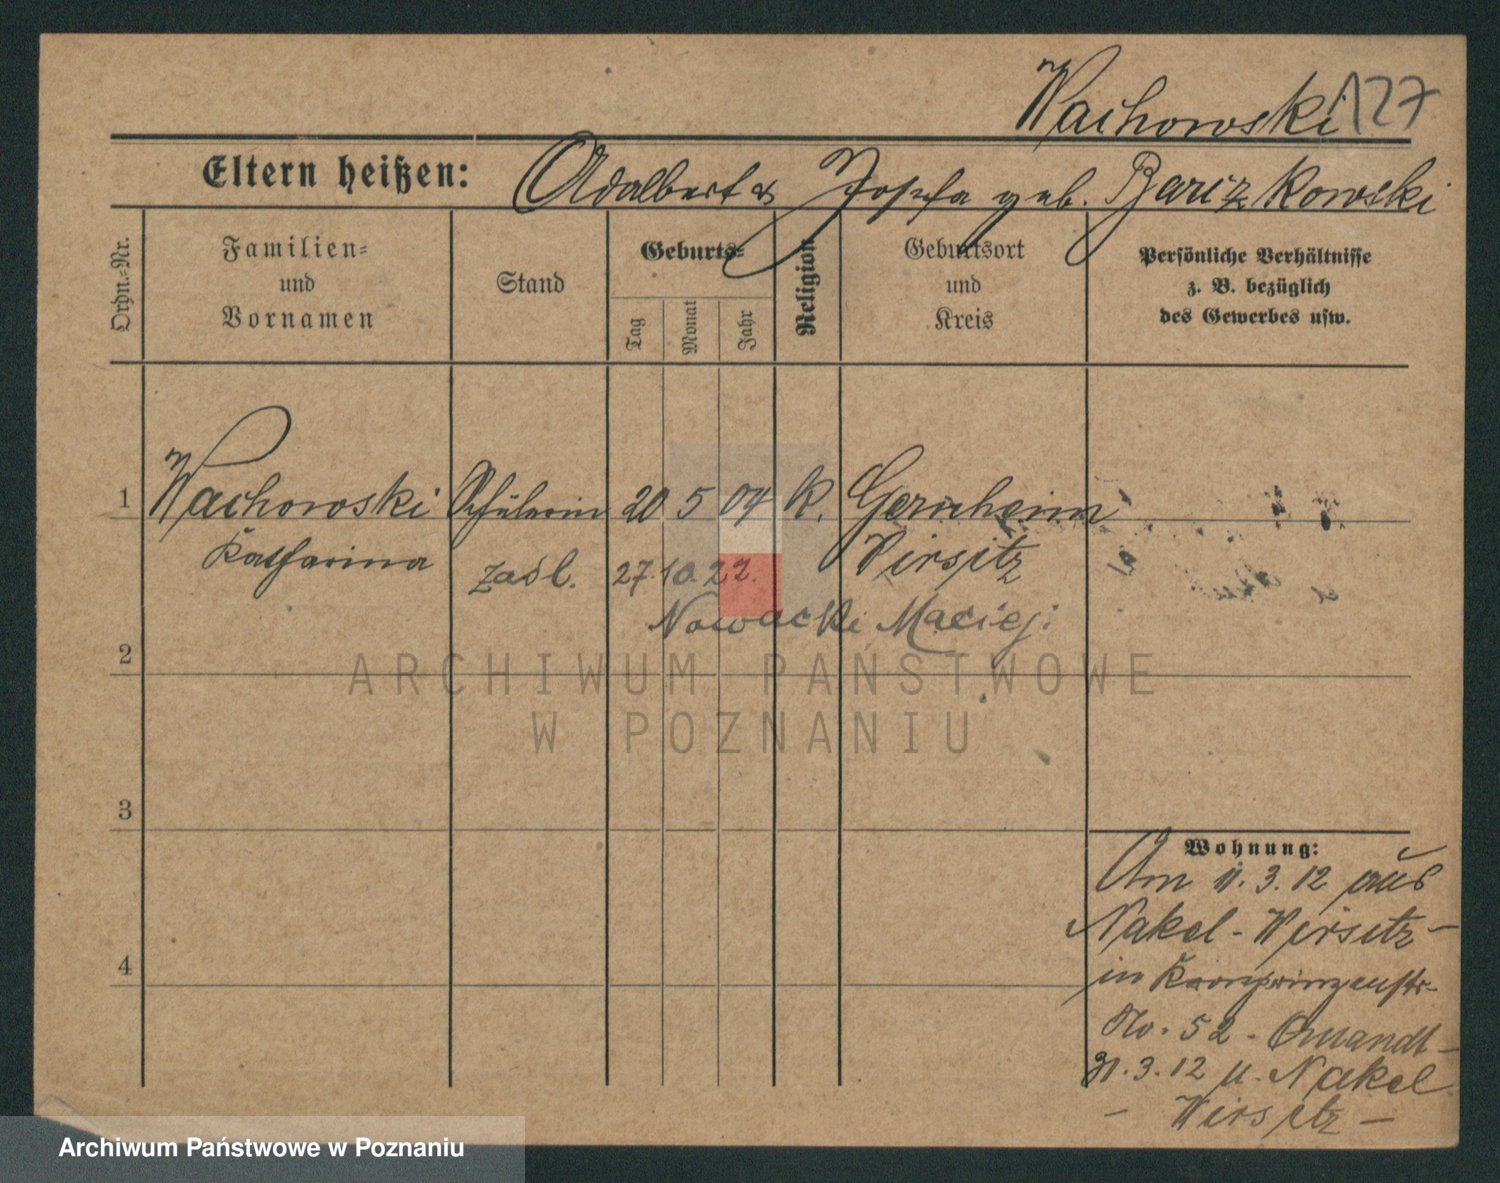 Wachowski 127
Eltern heißen: Adalbert & Josefa geb. Barizkowski
Ordn.-Nr.
Familien-
und
Vornamen
Stand
Geburts-
Tag
Monat
Jahr
Religion
Geburtsort
und
Kreis
Persönliche Verhältnisse
z. B. bezüglich
des Gewerbes usw.
1 Wachowski Schülerin 20 5 04 K. Gernheim
Katharina zasl. 27.10.22. Wirsitz
Nowacki Maciej
2
ARCHIWUM PAŃSTWOWE
W POZNANIU
3
Wohnung:
Am 11.3.12 aus
Nakel - Wirsitz -
4
in Kronprinzenstr
No. 52 -
31.3.12 n. Nakel
- Wirsitz -
Archiwum Państwowe w Poznaniu